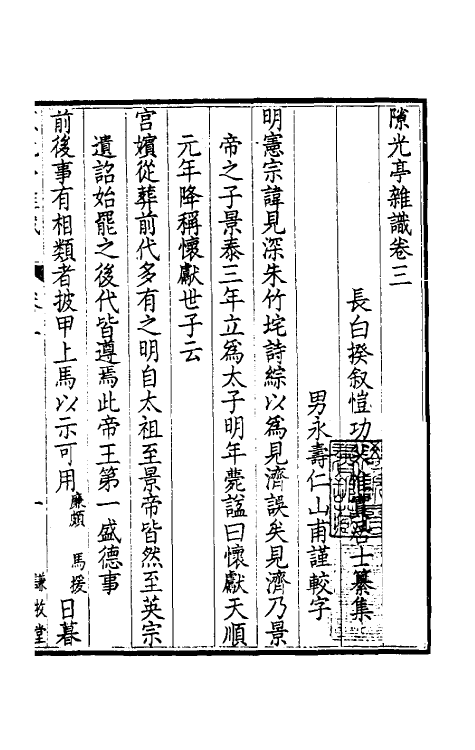 隙光亭雜識卷三
長白揆叙愷功父惟實居士纂集
男永壽仁山甫謹較字
明憲宗諱見深朱竹垞詩綜以爲見濟誤矣見濟乃景
帝之子景泰三年立爲太子明年薨謚曰懷獻天順
元年降稱懷獻世子云
宮嬪從葬前代多有之明自太祖至景帝皆然至英宗
遺詔始罷之後代皆遵焉此帝王第一盛德事
前後事有相類者披甲上馬以示可用廉頗 馬援日暮
謙牧堂